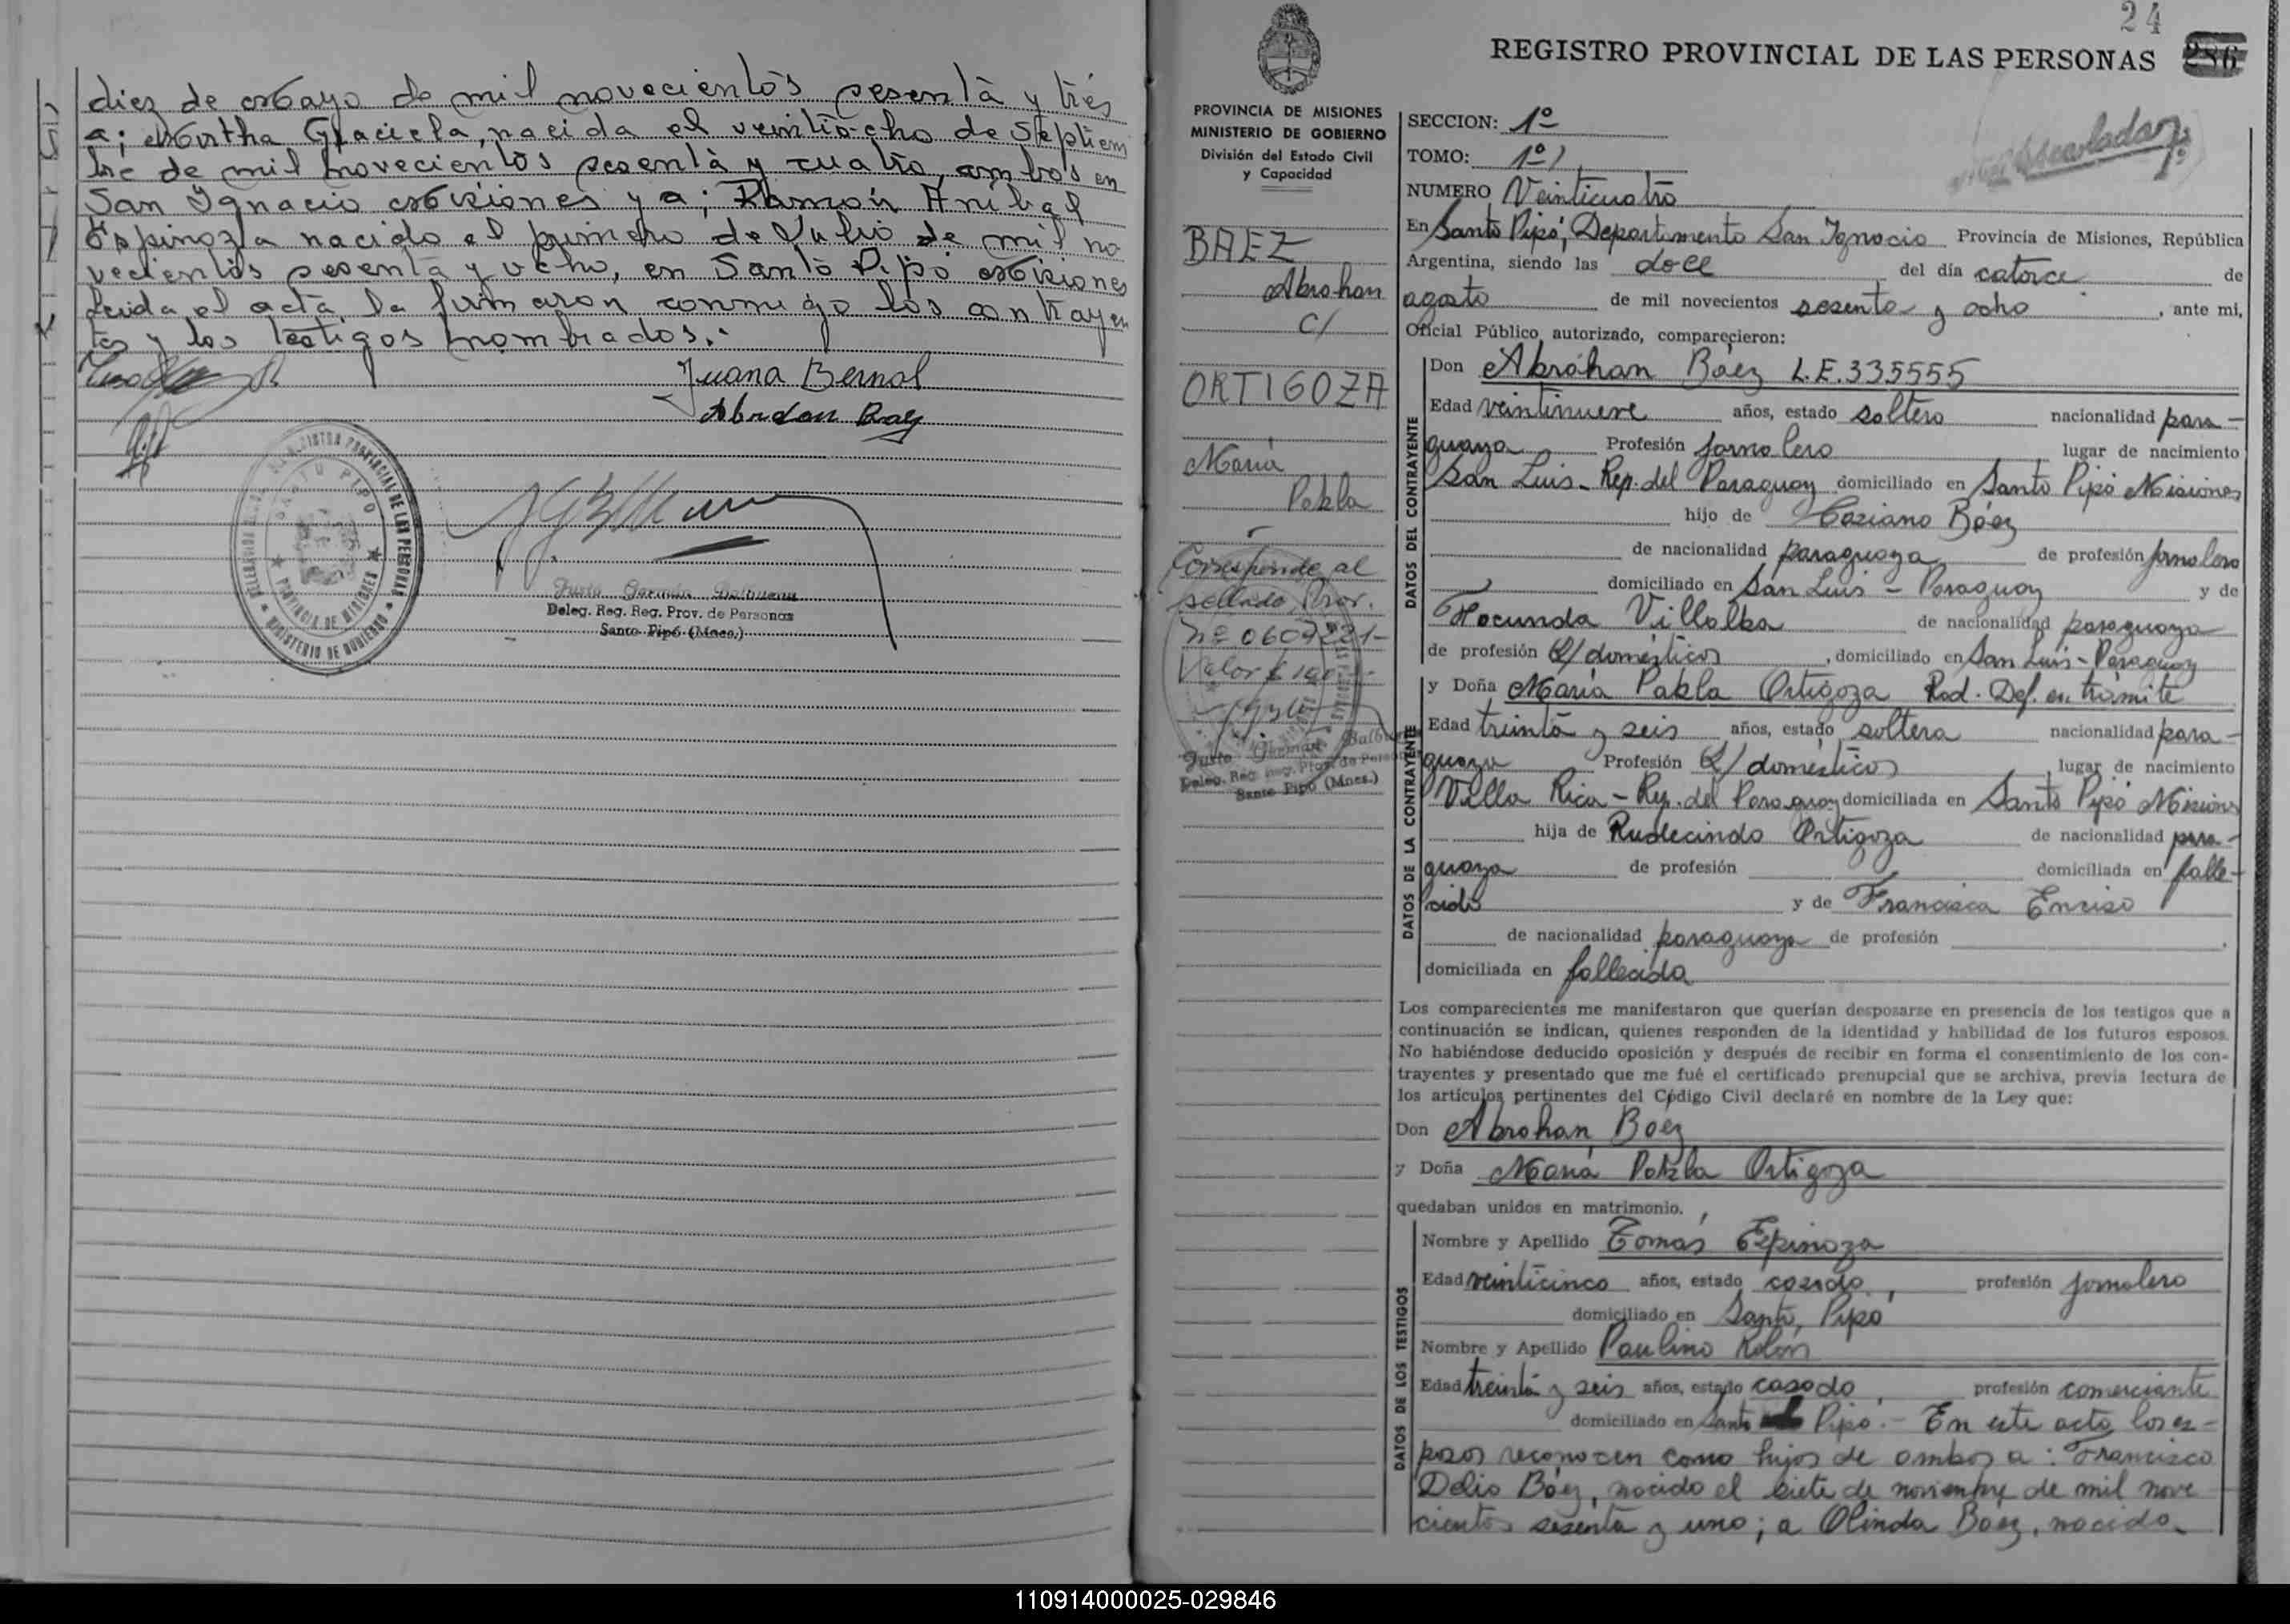 diez de Mayo de mil novecientos sesenta y tres
a; Mirtha Graciela, nacida el veintiocho de Septiem
bre de mil novecientos sesenta y cuatro, ambos en
San Ignacio Misiones y a; Ramón Anibal
Espinoza nacido el primero de Julio de mil no
vecientos sesenta y ocho, en Santo Pipó Misiones
Leida el acta, la firmaron conmigo los contrayen
tes y los testigos nombrados.-
Juana Bernal
Abrahan Baez
REGISTRO PROVINCIAL DE LAS PERSONAS
SANTO PIPO
PROVINCIA DE MISIONES
MINISTERIO DE GOBIERNO
Justo Germán Balbuena
Deleg. Reg. Reg. Prov. de Personas
Santo Pipó (Mnes.)
24
REGISTRO PROVINCIAL DE LAS PERSONAS 286
PROVINCIA DE MISIONES
MINISTERIO DE GOBIERNO
División del Estado Civil
y Capacidad
BAEZ
Abrahan
c/
ORTIGOZA
María
Pabla
Corresponde al
sellado Prov.
Nº 0607221-
Valor $
Justo Germán Balbuena
Deleg. Reg. Reg. Prov. de Personas
Santo Pipó (Mnes.)
SECCION: 1º
TOMO: 1º
NUMERO Veinticuatro
En Santo Pipó, Departamento San Ignacio Provincia de Misiones, República
Argentina, siendo las doce del día catorce de
agosto de mil novecientos sesenta y ocho, ante mi,
Oficial Público, autorizado, comparecieron:
DATOS DEL CONTRAYENTE
Don Abrahan Báez L.E. 335555
Edad veintinueve años, estado soltero nacionalidad para-
guaya Profesión jornalero lugar de nacimiento
San Luis - Rep. del Paraguay domiciliado en Santo Pipó Misiones
hijo de Casiano Báez
de nacionalidad paraguaya de profesión jornalero
domiciliado en San Luis - Paraguay y de
Facunda Villalba de nacionalidad paraguaya
de profesión Q/ domésticos, domiciliado en San Luis - Paraguay
DATOS DE LA CONTRAYENTE
y Doña María Pabla Ortigoza Rad. Def. en trámite
Edad treinta y seis años, estado soltera nacionalidad para-
guaya Profesión Q/ domésticos lugar de nacimiento
Villa Rica - Rep. del Paraguay domiciliada en Santo Pipó Misiones
hija de Rudecindo Ortigoza de nacionalidad para-
guaya de profesión domiciliada en falle-
cido y de Francisca Enciso
de nacionalidad paraguaya de profesión
domiciliada en fallecida
Los comparecientes me manifestaron que querían desposarse en presencia de los testigos que a
continuación se indican, quienes responden de la identidad y habilidad de los futuros esposos.
No habiéndose deducido oposición y después de recibir en forma el consentimiento de los con-
trayentes y presentado que me fué el certificado prenupcial que se archiva, previa lectura de
los artículos pertinentes del Código Civil declaré en nombre de la Ley que:
Don Abrahan Baez
y Doña María Pabla Ortigoza
quedaban unidos en matrimonio.
DATOS DE LOS TESTIGOS
Nombre y Apellido Tomás Espinoza
Edad veinticinco años, estado casado, profesión jornalero
domiciliado en Santo Pipó
Nombre y Apellido Paulino Rolón
Edad treinta y seis años, estado casado, profesión comerciante
domiciliado en Santo Pipó.- En este acto los es-
posos reconocen como hijos de ambos a: Francisco
Delio Báez, nacido el siete de noviembre de mil nove
cientos sesenta y uno; a Olinda Baez, nacida
110914000025-029846